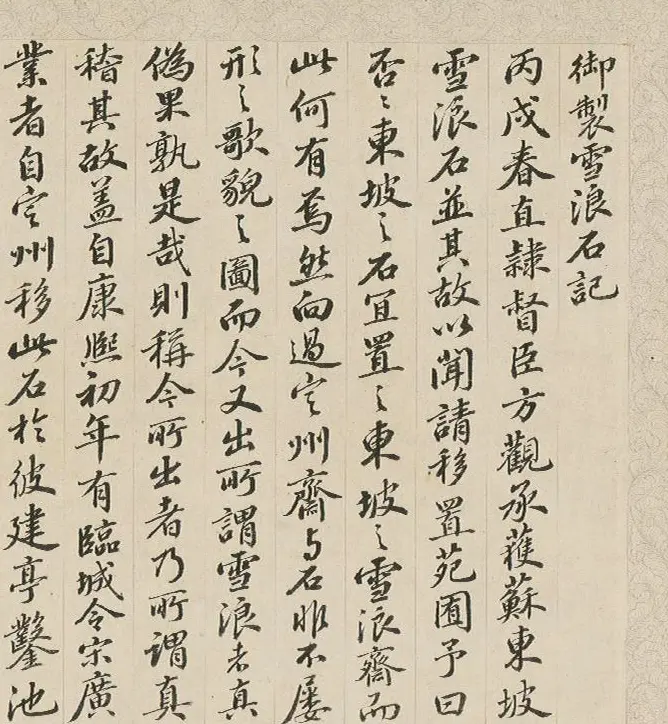 御製雪浪石記
丙戌春直隸督臣方觀承獲蘇東坡
雪浪石並其故以聞請移置苑囿予曰
否〻東坡之石宜置之東坡之雪浪齋而
此何有焉然向過定州齋与石昨不屡
形之歌貌之圖而今又出所謂雪浪者真
偽果孰是哉則稱今所出者乃所謂真
稽其故盖自康熙初年有臨城令宋廣
業者自定州移此石於彼建亭鑿池